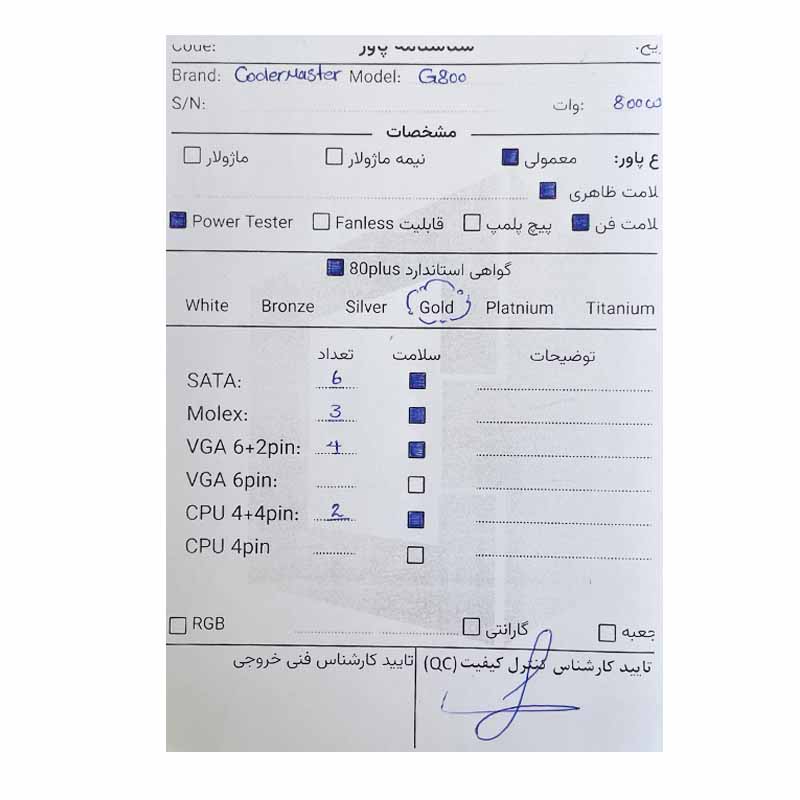 Code: شناسنامه پاور یخ:
Brand: CoolerMaster Model: G800
S/N: وات: 800w
مشخصات
ع پاور: معمولی نیمه ماژولار ماژولار
لامت ظاهری
لامت فن پیچ پلمپ قابلیت Fanless Power Tester
گواهی استاندارد 80plus
White Bronze Silver Gold Platnium Titanium
تعداد سلامت توضیحات
SATA: 6
Molex: 3
VGA 6+2pin: 4
VGA 6pin:
CPU 4+4pin: 2
CPU 4pin
RGB گارانتی جعبه
تایید کارشناس کنترل کیفیت (QC) تایید کارشناس فنی خروجی